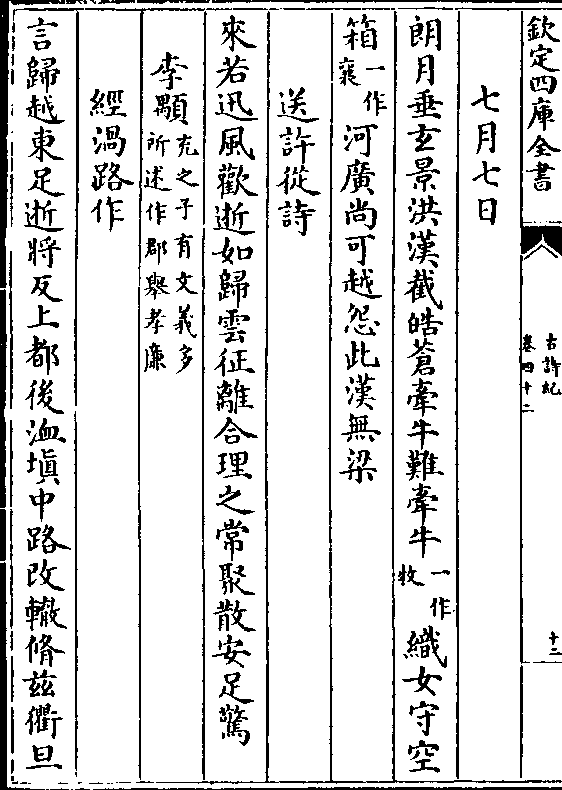 欽定四庫全書
古詩紀
卷四十二
十二
七月七日
朗月垂玄景洪漢截皓蒼牽牛難牽牛一作牧織女守空
箱一作襄河廣尚可越怨此漢無梁
送許從詩
來若迅風歡逝如歸雲征離合理之常聚散安足驚
李顒充之子有文義多所述作郡舉孝廉
經渦路作
言歸越東足逝將反上都後洫塡中路改轍脩茲衢旦